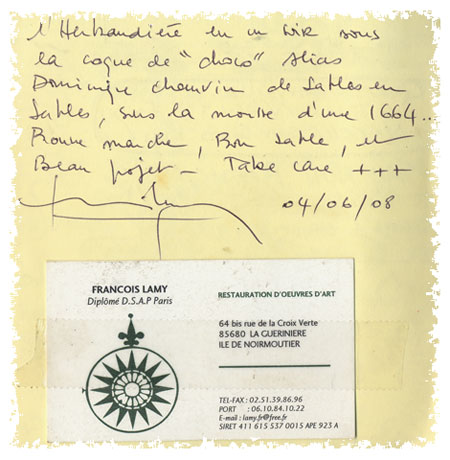 l'Herbaudière en un soir sous
la coque de "choco" Alias
Dominique chauvin de Sables en
Sables, sous la mousse d'une 1664...
Bonne marche, Bon sable, et
Beau projet - Take care +++
04/06/08
FRANCOIS LAMY
Diplômé D.S.A.P Paris
RESTAURATION D'OEUVRES D'ART
64 bis rue de la Croix Verte
85680 LA GUERINIERE
ILE DE NOIRMOUTIER
TEL-FAX : 02.51.39.86.96
PORT : 06.10.84.10.22
E-mail : lamy.fr@free.fr
SIRET 411 615 537 0015 APE 923 A